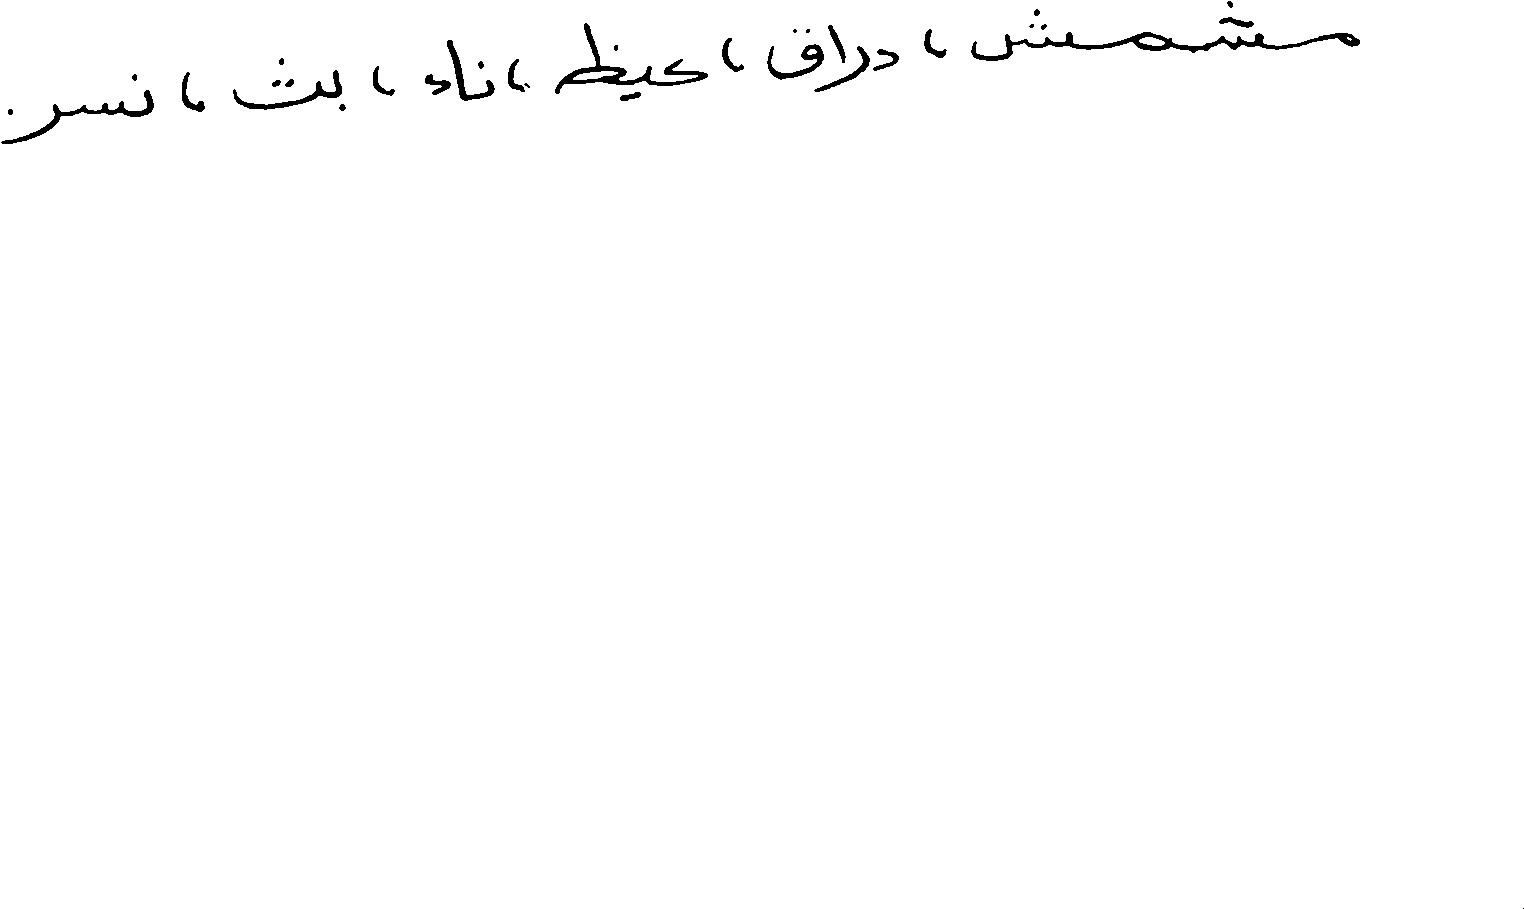 مشمش ، دراق ، كيظ ، ناء ، بث ، نسر .